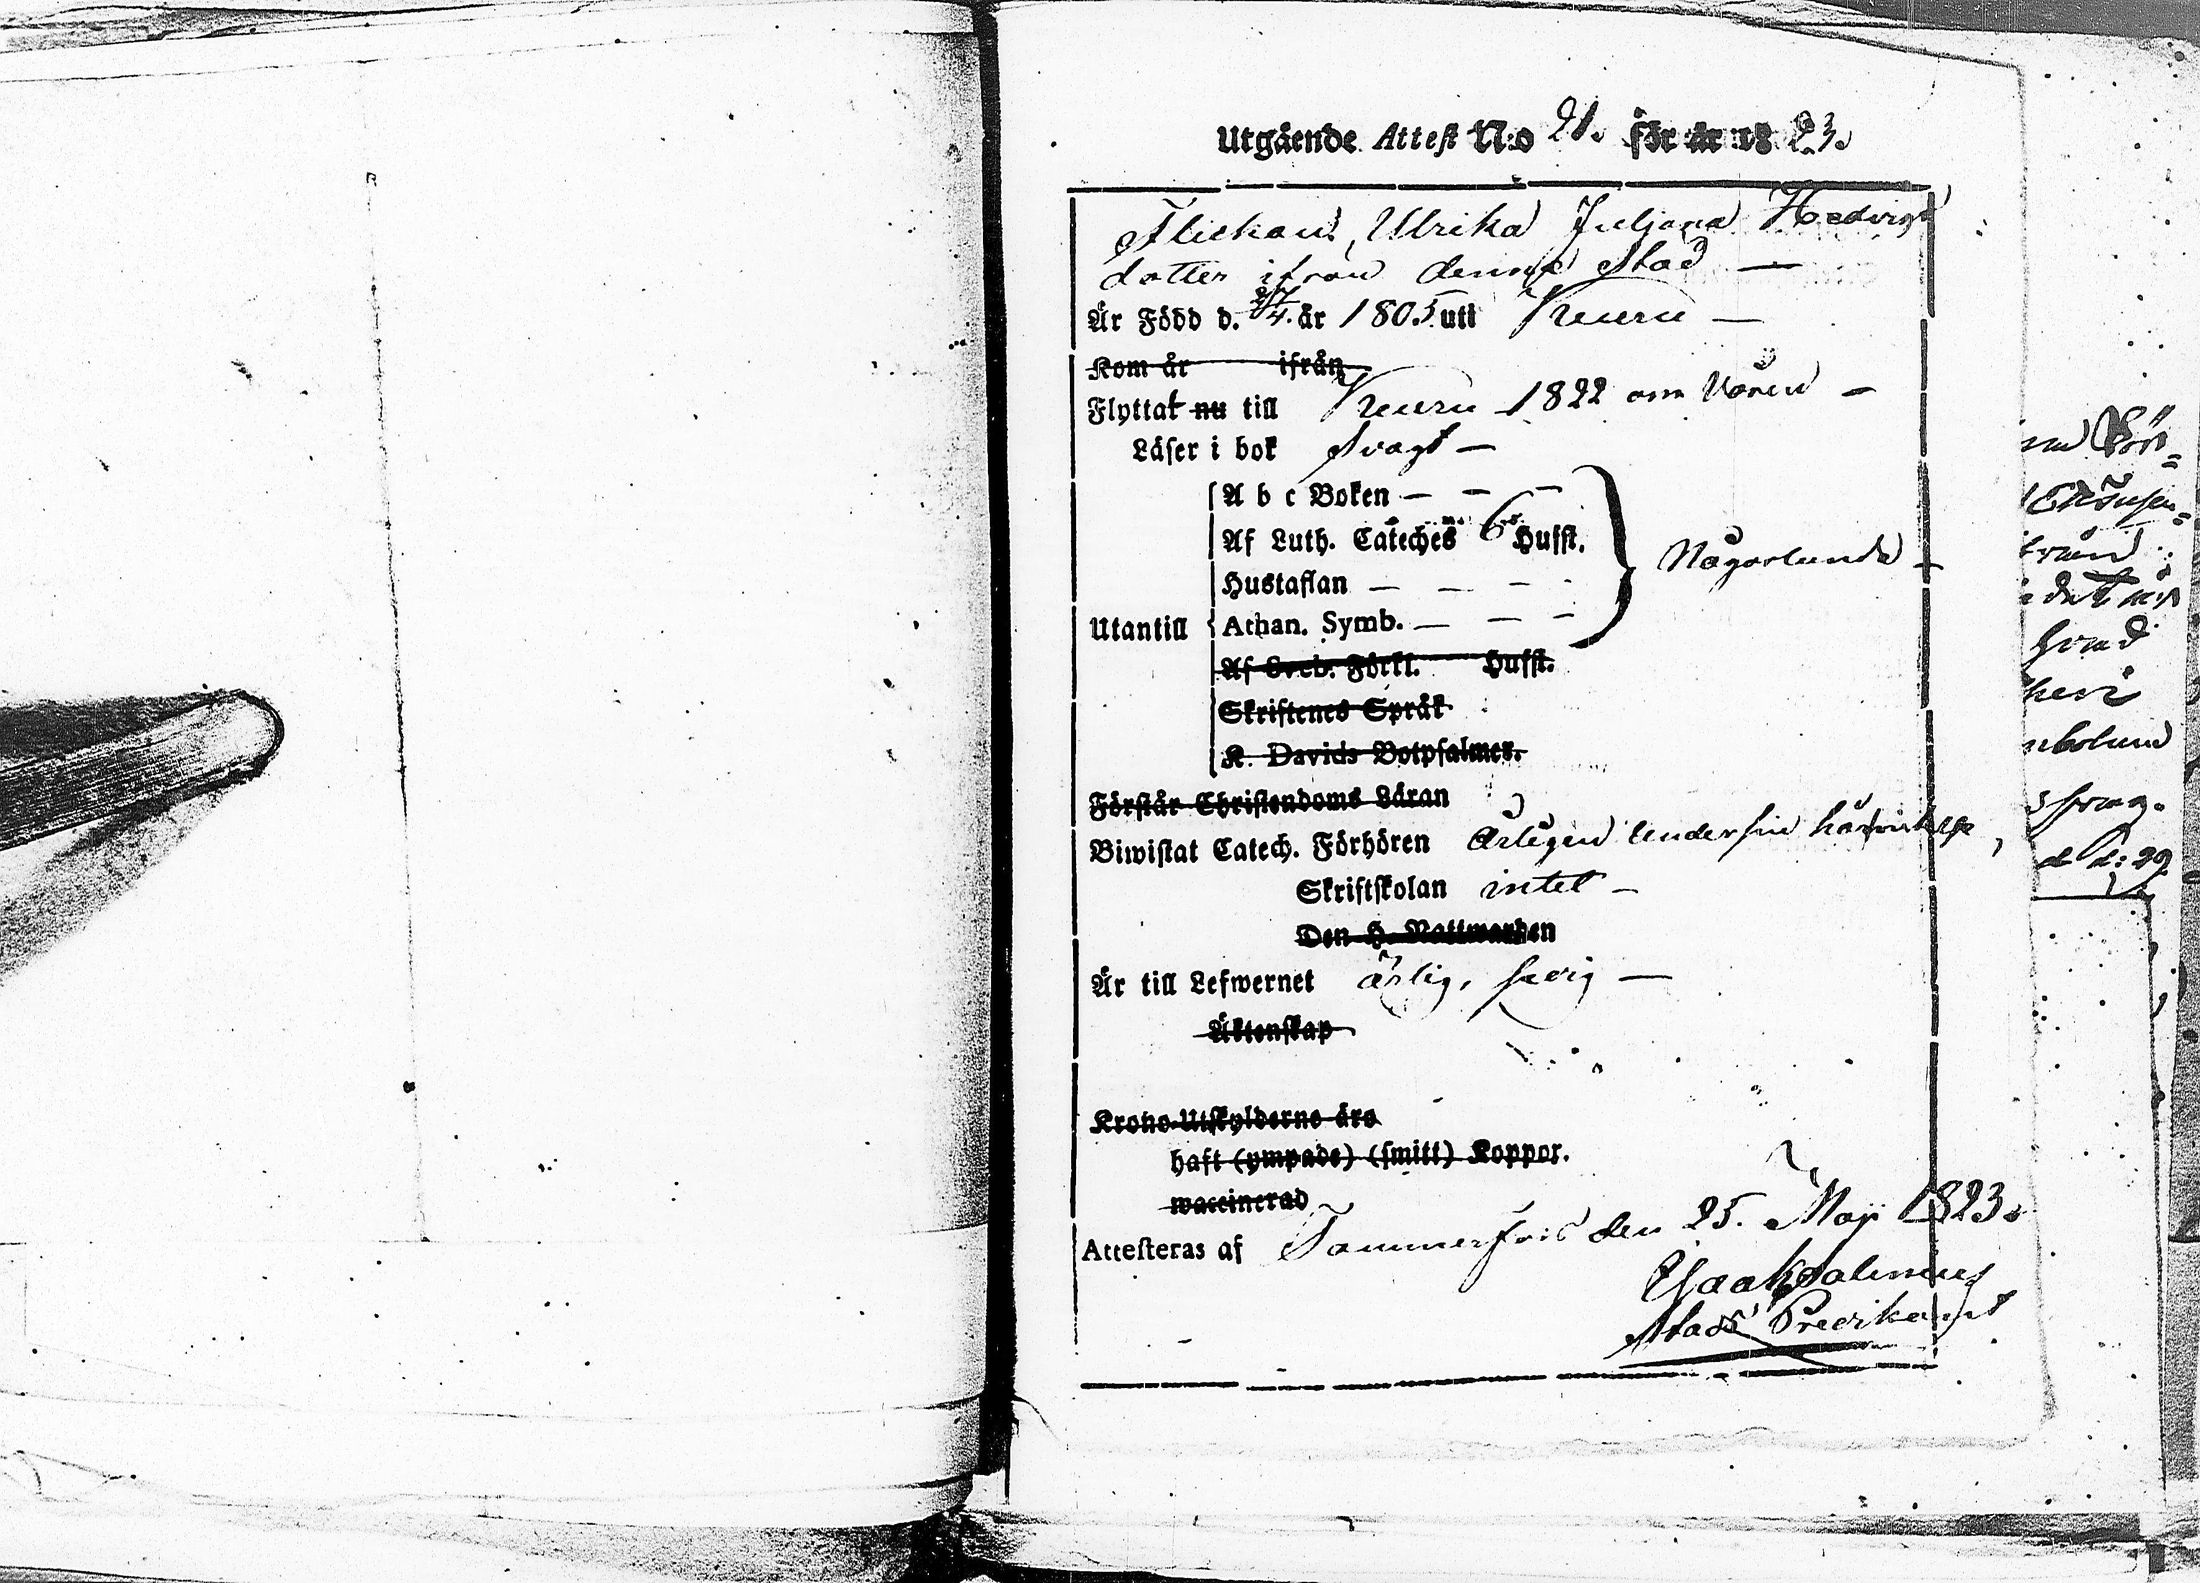 Utgående Attest N:o 21. för år 1823.
Flickan, Ulrika Juljana Hedvigs
dotter ifrån denna Stad —
Är Född d. 27/4. år 1805 uti Keuru —
Kom år ifrån
Flyttat nu till Keuru 1822 om Våren —
Läser i bok Svagt —
A b c Boken — — —
Af Luth. Cateches 6 Hufst.
Hustaflan — — —
Någorlunda —
Utantill Athan. Symb. — — —
Af Sveb. Förkl. Hufst.
Skriftenes Språk
K. Davids Botpsalmer.
Förstår Christendoms Läran
Biwistat Catech. Förhören Årligen under sin härvarelse
Skriftskolan intet —
Den H. Nattwarden
Är till Lefwernet ärlig, fri —
Äktenskap
Krono-Utskylderne äro
haft (ympade) (smitt) Koppor.
waccinerad
Attesteras af Tammerfors den 25. Maji 1823.
Stads Predikant